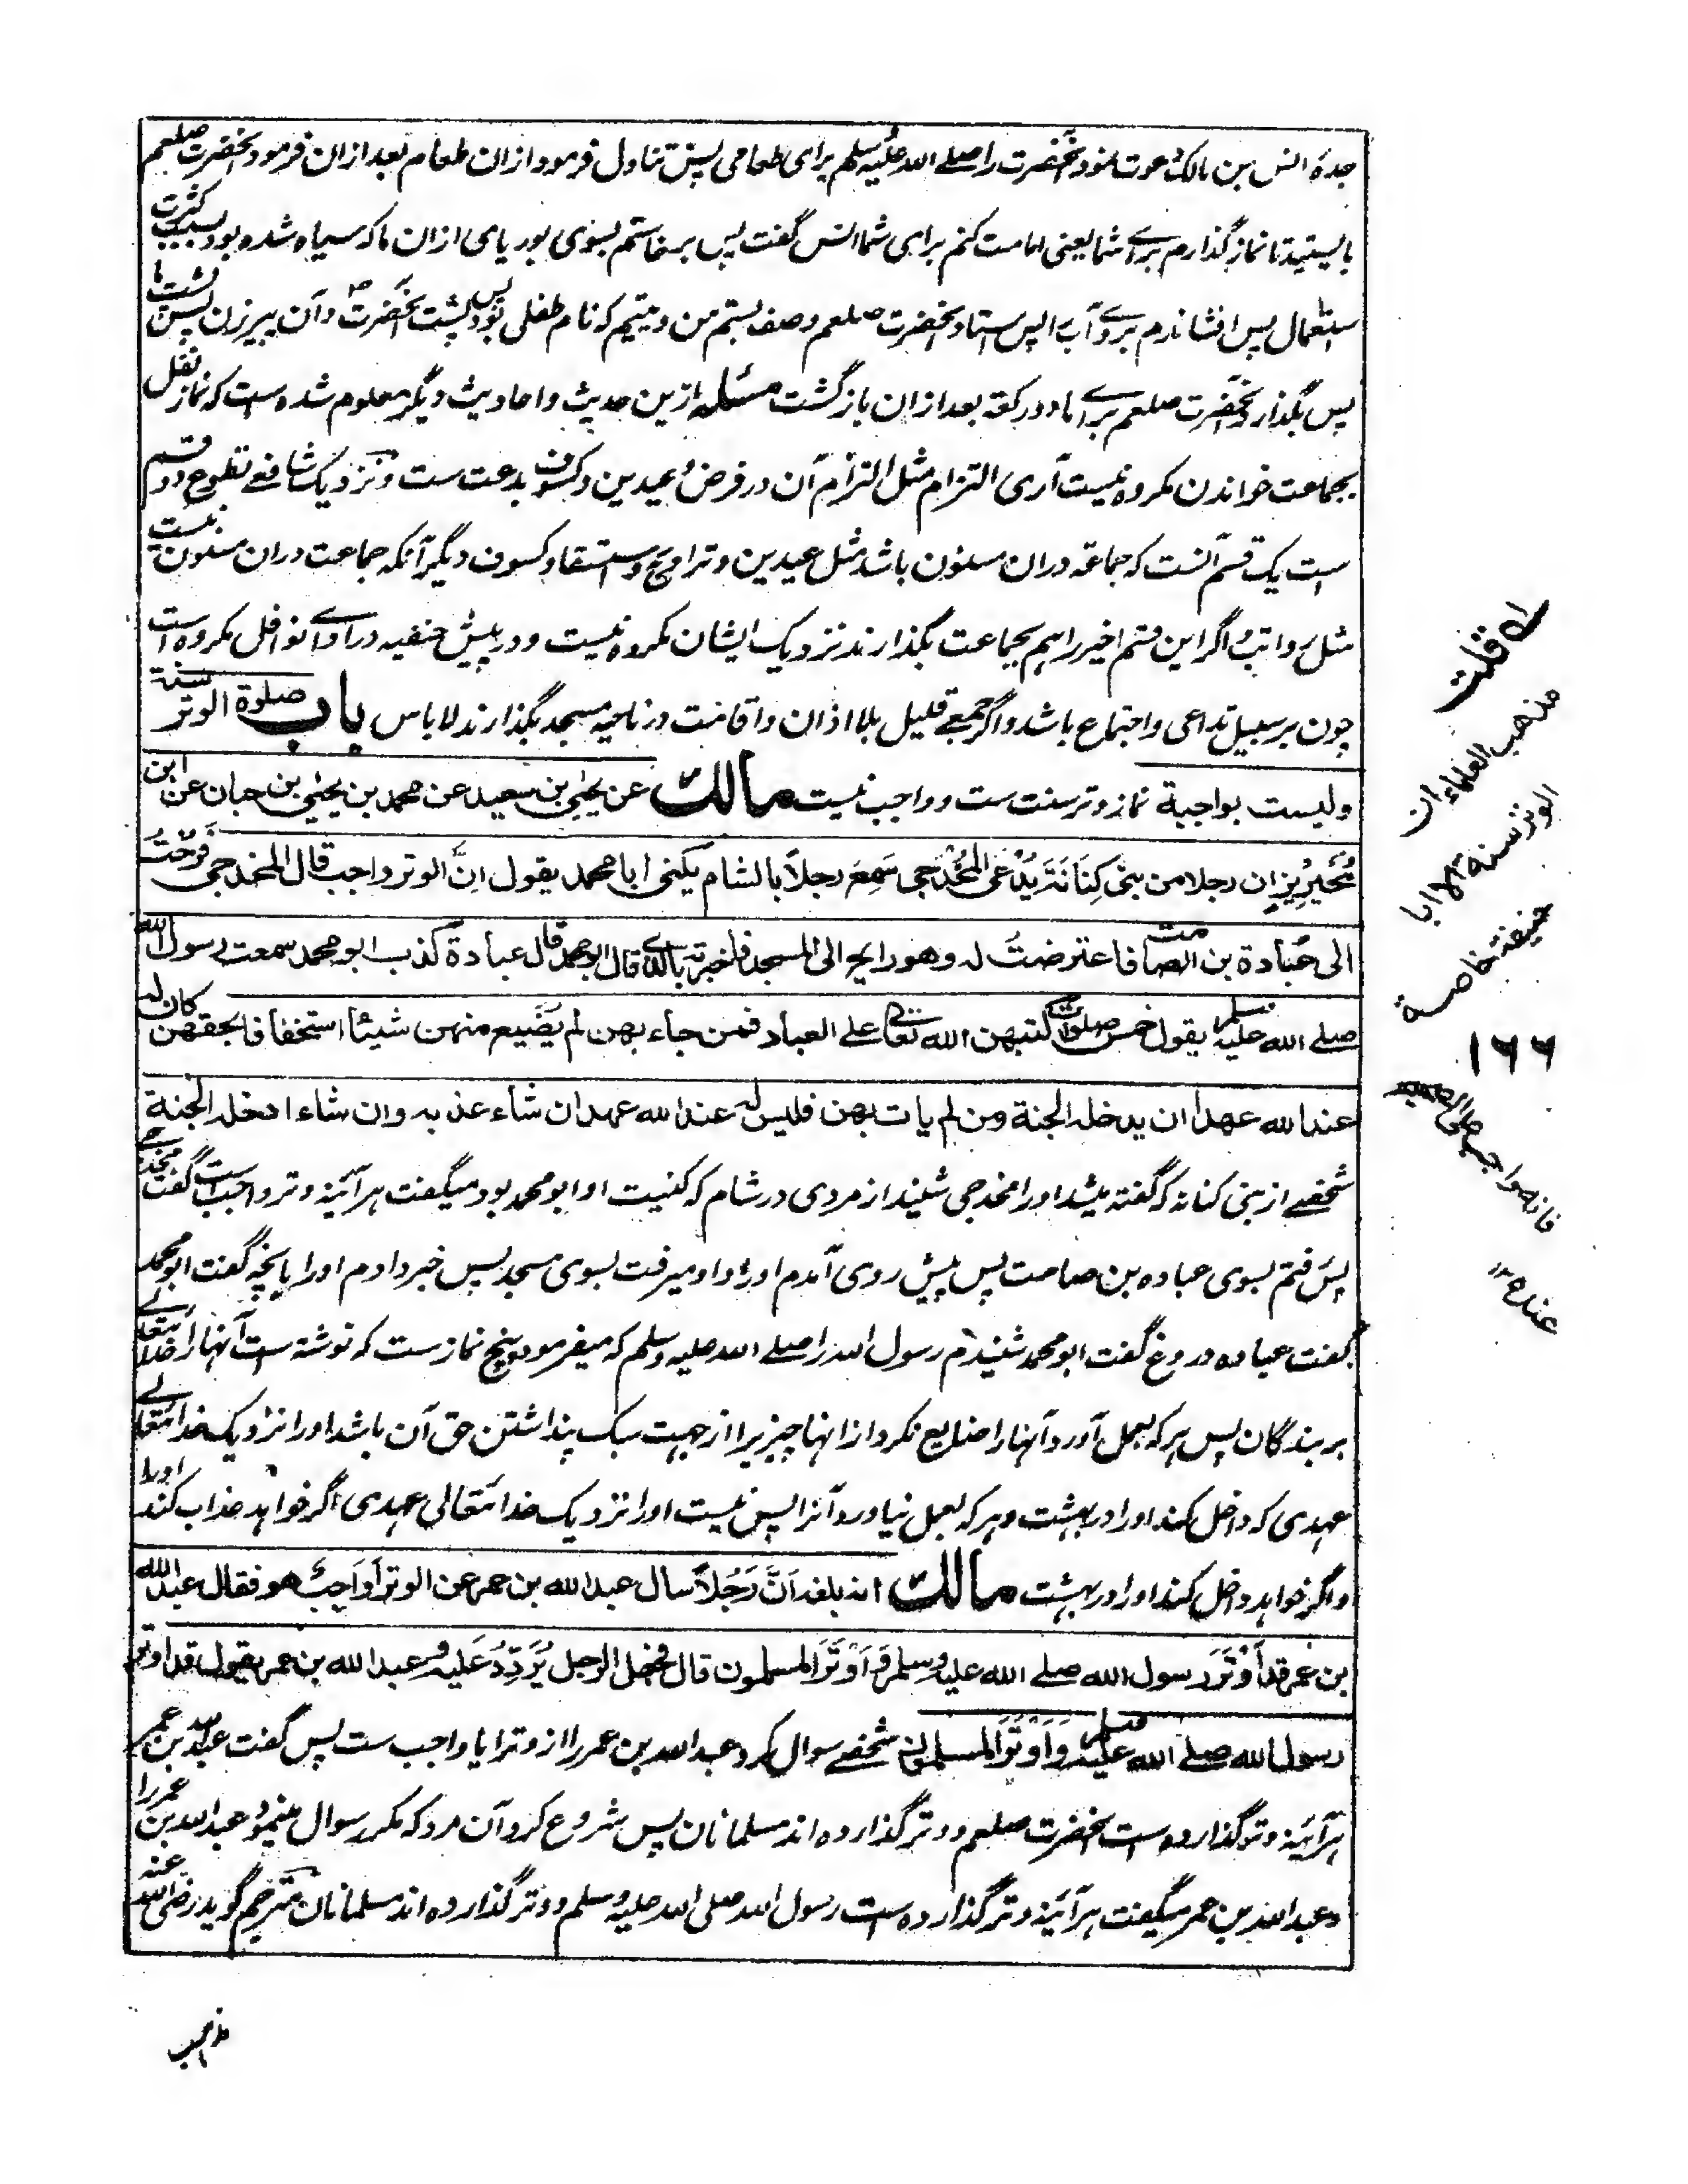 جده انس بن مالک دعوت نمود آنحضرت را صلے الله علیه وسلم برای طعامی پس تناول فرمود ازان طعام بعد ازان فرمود آنحضرت صلعم
بایستید تا نماز گذارم برای شما یعنی امامت کنم برای شما انس گفت پس برخاستم بسوی بوریای ازان ما که سیاه شده بود بسبب کثرت
استعمال پس افشاندم بروے آب را پس ستاد آنحضرت صلعم وصف بستم من ویتیم که نام طفلی بود پس پشت آنحضرت ص وآن پیرزن پس پشت ما
پس بگذارد آنحضرت صلعم براے ما دو رکعه بعد ازان بازگشت مسئله ازین حدیث واحادیث دیگر معلوم شده است که نماز نفل
بجماعت خواندن مکروه نیست آری التزام مثل التزام آن در فرض وعیدین وکسوف بدعت ست ونزدیک شافعے تطوع دو قسم
است یک قسم آنست که جماعة دران مسنون باشد مثل عیدین وتراویح واستسقا وکسوف دیگر آنکه جماعت دران مسنون نیست
مثل رواتب اگر این قسم اخیر را هم بجماعت بگذارند نزدیک ایشان مکروه نیست ودر پیش حنفیه در اداے نوافل مکروه است
چون بر سبیل تداعی واجتماع باشد واگر جمعے قلیل بلا اذان واقامت در ناحیه مسجد بگذارند لاباس باب صلوة الوتر سنة
وليست بواجبة نماز وتر سنت ست وواجب نیست مالك عن يحيى بن سعيد عن محمد بن يحيى بن حبان عن ابن
مُحَيرِيز ان رجلا من بنى كِنَانَة يُدْعى المُخْدجى سَمِعَ رجلاً بالشام يكنى ابا محمد يقول انَّ الوتر واجب قال المخدجى فَرُحْتُ
الى عُبَادة بن الصامت فاعترضتُ له وهو رايح الى المسجد فاخبرته بالذي قال ابو محمد قال عبادة كذب ابو محمد سمعت رسول الله
صلے الله عليه وسلم يقول خمس صلوات كتبهن الله تعالى على العباد فمن جاء بهن لم يضيع منهن شيئا استخفافا بحقهن كان له
عند الله عهدا ان يدخله الجنة ومن لم يات بهن فليس له عند الله عهد ان شاء عذبه وان شاء ادخله الجنة
شخصے از بنی کنانه که گفته میشد اورا مخدجی شنید از مردی در شام که کنیت او ابو محمد بود میگفت هر آئینه وتر واجب است گفت مخدجی
پس رفتم بسوی عباده بن صامت پس پیش روی آمدم اورا واو میرفت بسوی مسجد پس خبر دادم اورا بانچه گفت ابو محمد
گفت عباده دروغ گفت ابو محمد شنیدم رسول الله را صلے الله علیه وسلم که میفرمود پنج نماز ست که نوشته است آنها را خدا تعالے
بر بندگان پس هر که بعمل آورد آنها را ضایع نکرد از انها چیزیرا از جهت سبک پنداشتن حق آن باشد اورا نزدیک خدا تعالے
عهدی که داخل کند اورا در بهشت وهر که بعمل نیاورد آنرا پس نیست اورا نزدیک خدا تعالی عهدی اگر خواهد عذاب کند اورا
واگر خواهد داخل کند اورا در بهشت مالك انه بلغه اَنَّ رَجُلاً سال عبد الله بن عمر عن الوتر اَوَاجِبٌ هو فقال عبد الله
بن عمر قد اَوْتَرَ رسول الله صلے الله عليه وسلم وَاَوْتَرَ المسلمون قال فجعل الرجل يُرَدِّدُ عَليه وعبد الله بن عمر يقول قد اوتر
رسول الله صلے الله عليه وسلم وَاَوْتَرَ المسلمون شخصے سوال کرد عبد الله بن عمر را از وتر ایا واجب ست پس گفت عبد الله بن عمر
هر آئینه وتر گذارده است آنحضرت صلعم ووتر گذارده اند مسلمانان پس شروع کرد آن مرد که مکرر سوال مینمود عبد الله بن عمر را
وعبد الله بن عمر میگفت هر آئینه وتر گذارده است رسول الله صلی الله علیه وسلم ووتر گذارده اند مسلمانان مترجم گوید رضی الله عنه
قلت
مذهب العلماء ان
الوتر سنة الا ابا
حنيفة خاصة
۱۶۶
فانه واجب على الصحيح
عنده ۱۲
مذهب